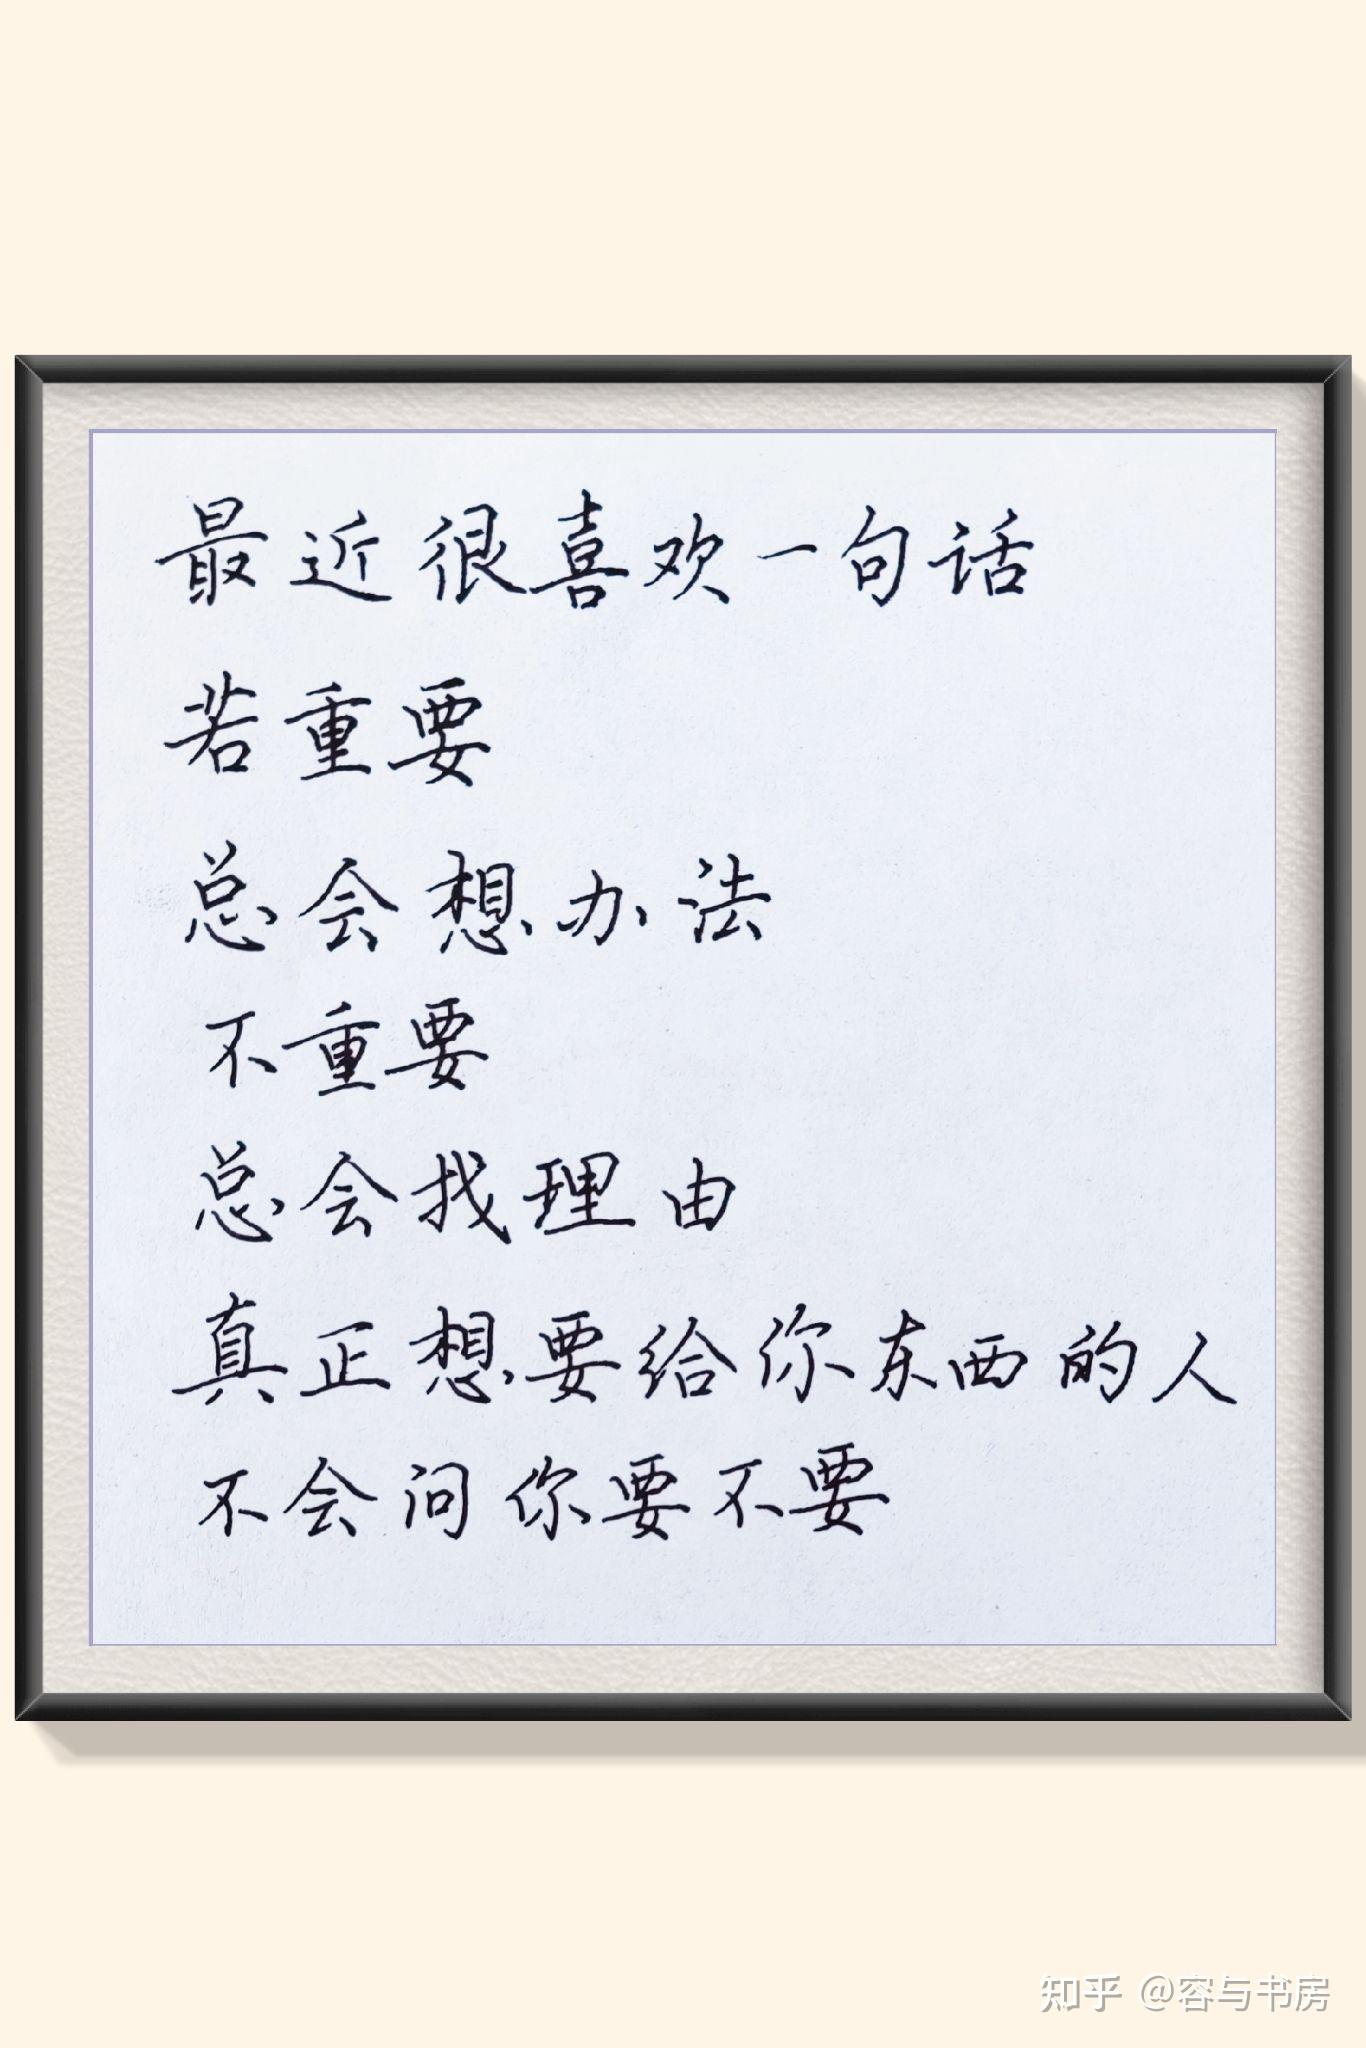 最近很喜欢一句话
若重要
总会想办法
不重要
总会找理由
真正想要给你东西的人
不会问你要不要
知乎 @容与书房